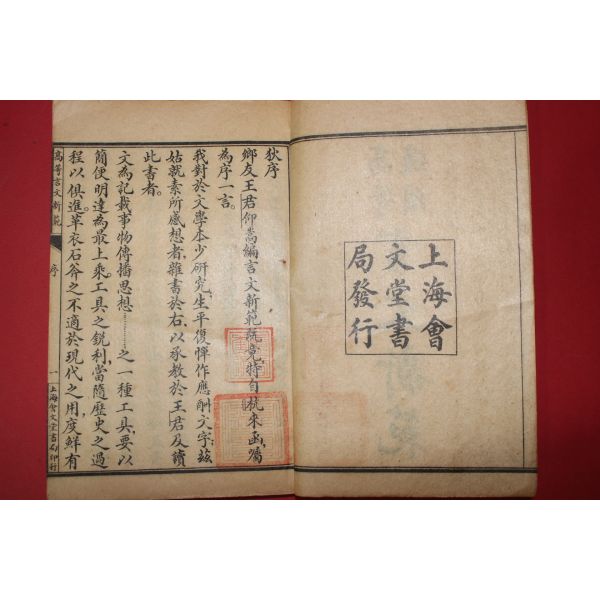 上海會
文堂書
局發行
狄序
鄉友王君仰嵩編言文新範旣竟特自杭來函囑
為序一言。
我對於文學本少研究生平復憚作應酬文字茲
姑就素所感想者雜書於右以承教於王君及讀
此書者。
文為記載事物傳播思想…………之一種工具要以
簡便明達為最上乘工具之銳利當隨歷史之過
程以俱進革衣石斧之不適於現代之用度鮮有
高等言文新範
序
一
上海會文堂書局印行